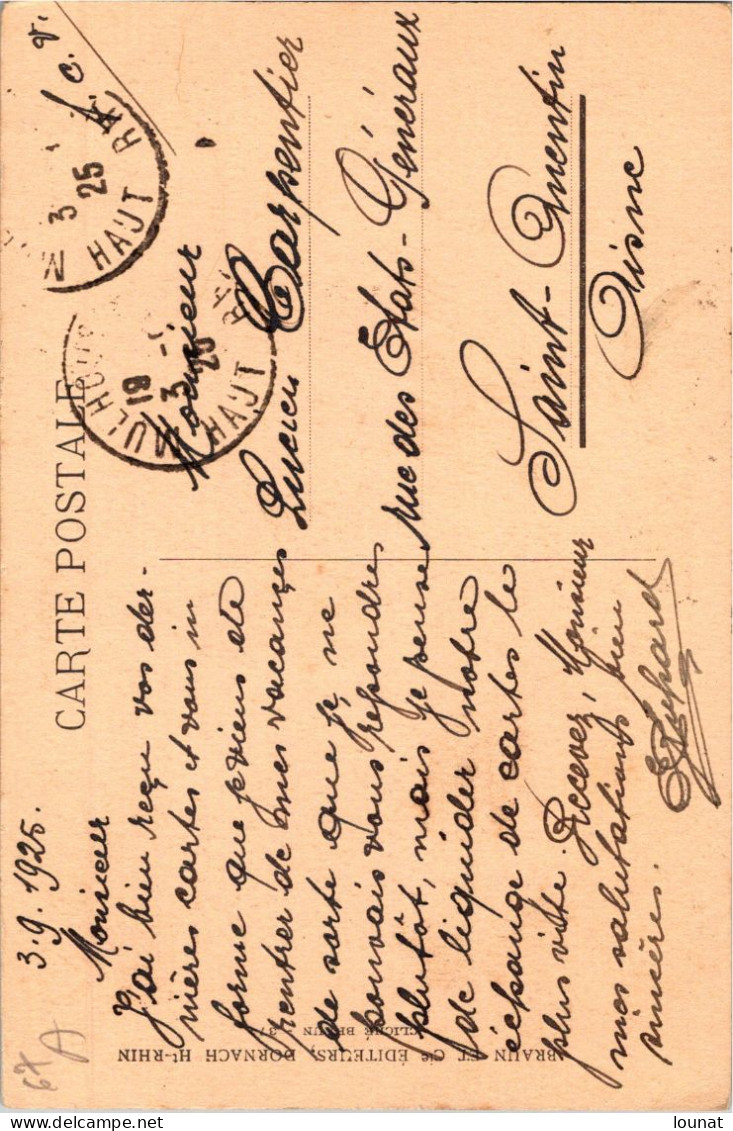 CARTE POSTALE
3.9.1925.
Monsieur
J'ai bien reçu vos der-
nières cartes et vous in
forme que je viens de
rentrer de mes vacances
de sorte que je ne
pouvais vous répondre
plutôt, mais je pense
de liquider notre
échange de cartes le
plus vite. Recevez, Monsieur
mes salutations bien
sincères.
c.v.
Monsieur
Lucien Carpentier
rue des États-Généraux
Saint-Quentin
Aisne
MULHOUSE
18
3
25
HAUT RHIN
3
25
HAUT RH
BRAUN ET Cie ÉDITEURS, DORNACH Ht-RHIN
CLICHÉ BRAUN
67
A
lounat